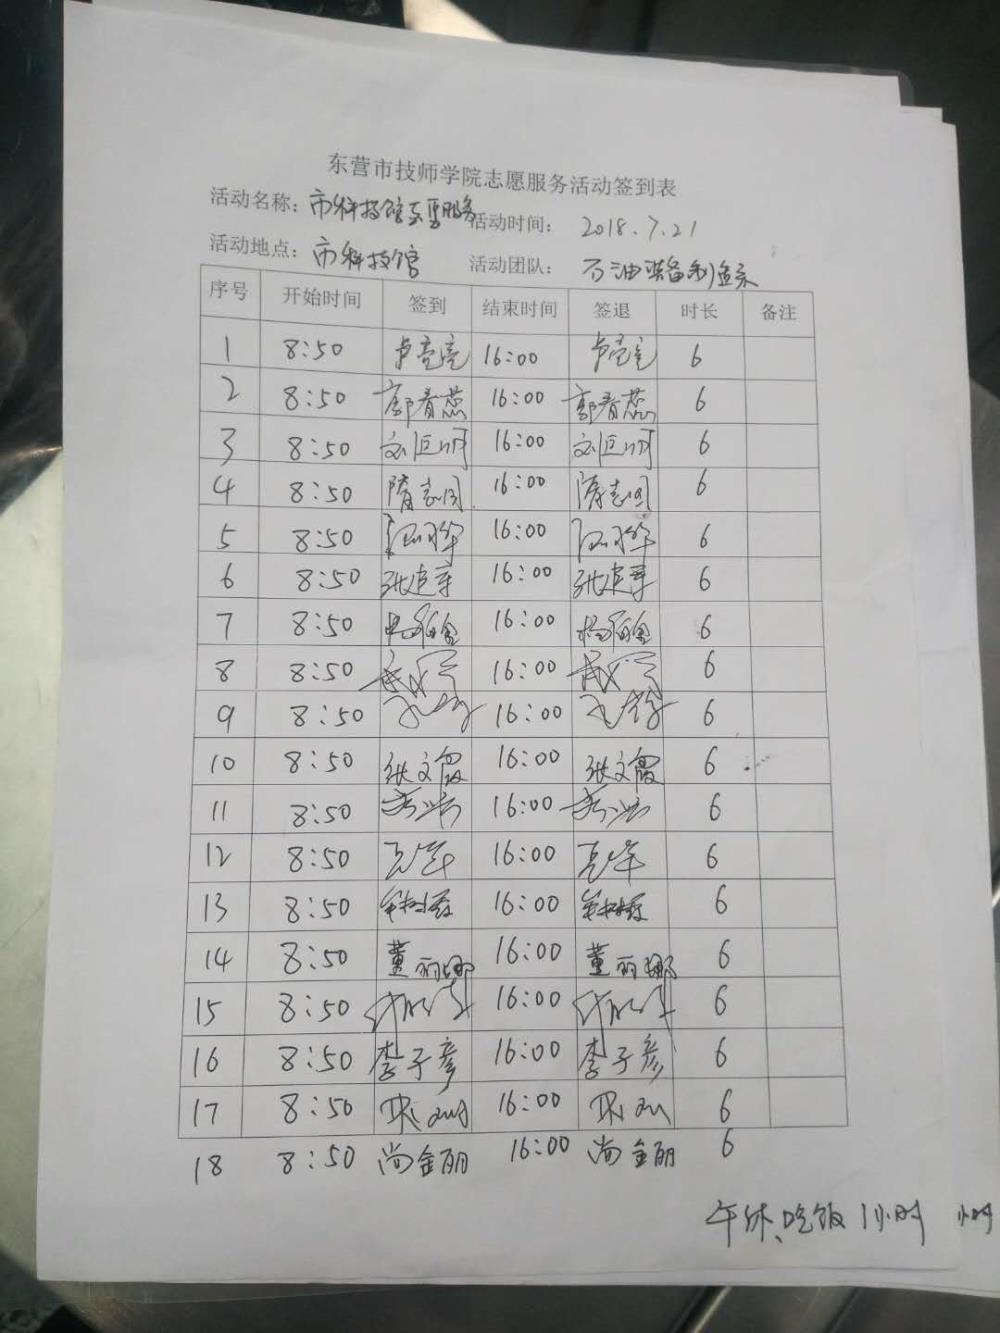 东营市技师学院志愿服务活动签到表
活动名称：市科技馆志愿服务 活动时间： 2018.7.21
活动地点：市科技馆 活动团队：石油装备制造系
序号 开始时间 签到 结束时间 签退 时长 备注
1 8:50 卢亮亮 16:00 卢亮亮 6
2 8:50 郭春蕊 16:00 郭春蕊 6
3 8:50 16:00 6
4 8:50 隋志同 16:00 隋志同 6
5 8:50 16:00 6
6 8:50 16:00 6
7 8:50 16:00 6
8 8:50 16:00 6
9 8:50 16:00 6
10 8:50 张文霞 16:00 张文霞 6
11 8:50 16:00 6
12 8:50 16:00 6
13 8:50 16:00 6
14 8:50 董丽娜 16:00 董丽娜 6
15 8:50 16:00 6
16 8:50 李子彦 16:00 李子彦 6
17 8:50 16:00 6
18 8:50 尚金丽 16:00 尚金丽 6
午休、吃饭 1小时 小时